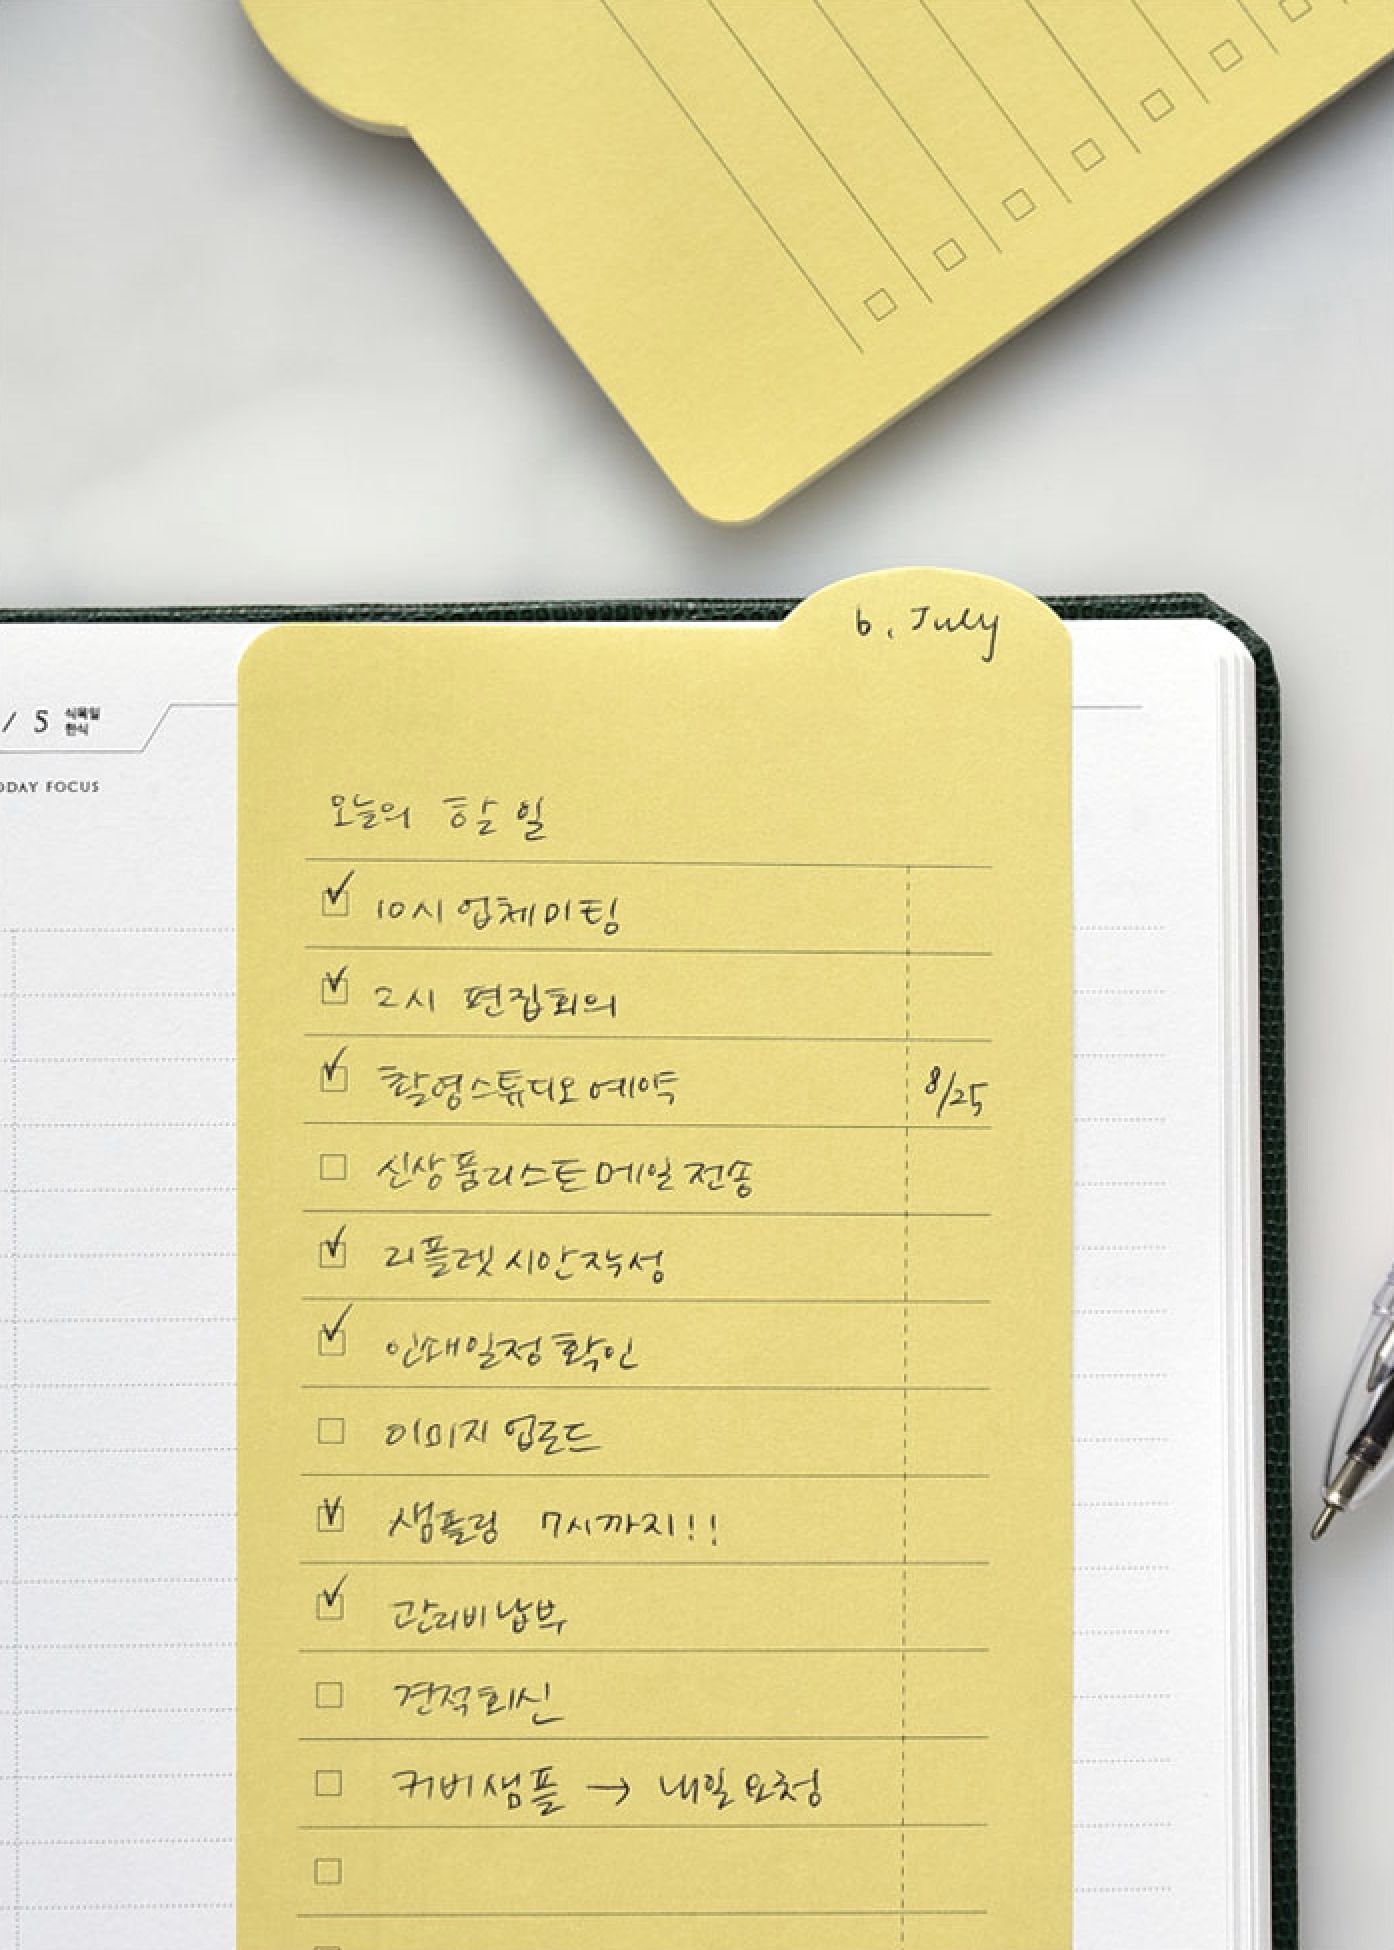 6. July
/ 5 식목일
한식
ODAY FOCUS
오늘의 할 일
10시 업체미팅
2시 편집회의
촬영스튜디오예약 8/25
신상품리스트메일전송
리플렛시안작성
인쇄일정확인
이미지업로드
샘플링 7시까지!!
관리비납부
견적회신
커버샘플 → 내일요청